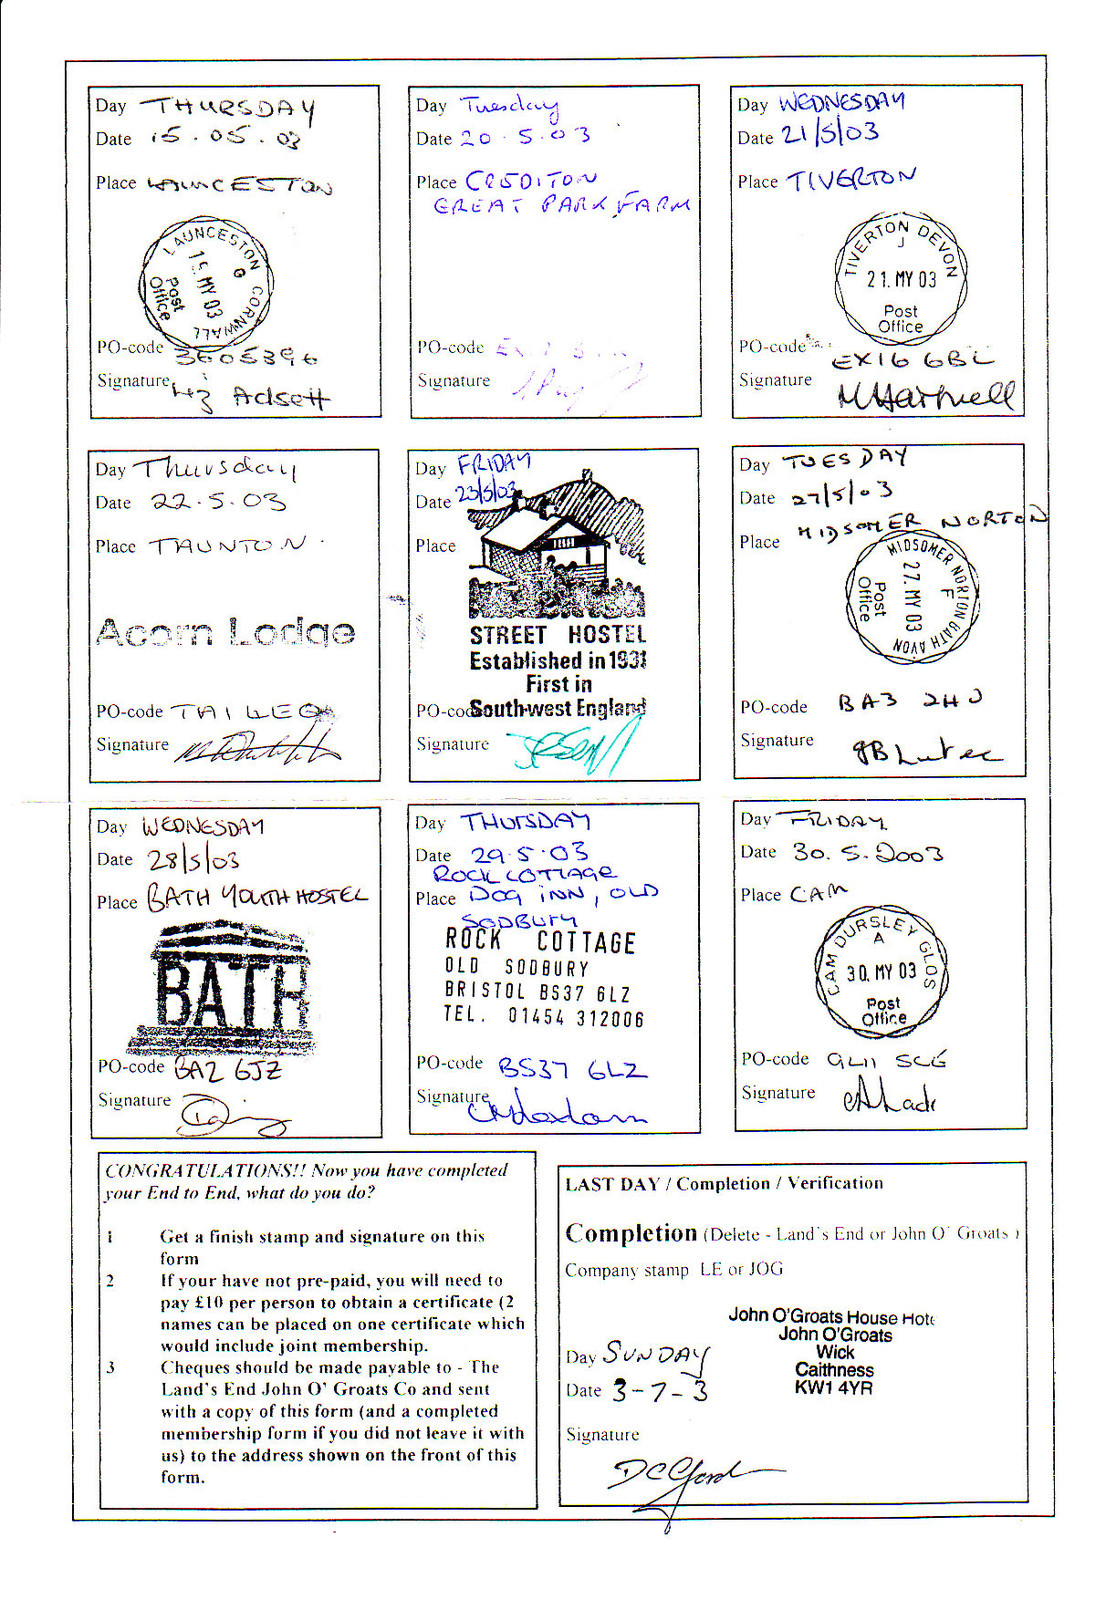 Day THURSDAY
Date 15.05.03
Place LAUNCESTON
LAUNCESTON CORNWALL
G
15 MY 03
Post
Office
PO-code 3605396
Signature Liz Adsett
Day Tuesday
Date 20.5.03
Place CREDITON
GREAT PARK FARM
PO-code
Signature
Day WEDNESDAY
Date 21/5/03
Place TIVERTON
TIVERTON DEVON
J
21. MY 03
Post
Office
PO-code EX16 6BL
Signature M Hartnell
Day Thursday
Date 22.5.03
Place TAUNTON.
Acorn Lodge
PO-code TA1
Signature
Day FRIDAY
Date 23/5/03
Place
STREET HOSTEL
Established in 1931
First in
South-west England
PO-code
Signature
Day TUESDAY
Date 27/5/03
Place MIDSOMER NORTON
MIDSOMER NORTON BATH AVON
F
27. MY 03
Post
Office
PO-code BA3 2HJ
Signature
Day WEDNESDAY
Date 28/5/03
Place BATH YOUTH HOSTEL
BATH
PO-code BA2 6JZ
Signature
Day THURSDAY
Date 29.5.03
ROCK COTTAGE
Place DOG INN, OLD
SODBURY
ROCK COTTAGE
OLD SODBURY
BRISTOL BS37 6LZ
TEL. 01454 312006
PO-code BS37 6LZ
Signature
Day FRIDAY
Date 30.5.2003
Place CAM
CAM DURSLEY GLOS
A
30. MY 03
Post
Office
PO-code GL11 5LE
Signature
CONGRATULATIONS!! Now you have completed
your End to End, what do you do?
1 Get a finish stamp and signature on this
form
2 If your have not pre-paid, you will need to
pay £10 per person to obtain a certificate (2
names can be placed on one certificate which
would include joint membership.
3 Cheques should be made payable to - The
Land's End John O' Groats Co and sent
with a copy of this form (and a completed
membership form if you did not leave it with
us) to the address shown on the front of this
form.
LAST DAY / Completion / Verification
Completion (Delete - Land's End or John O' Groats )
Company stamp LE or JOG
John O'Groats House Hote
John O'Groats
Wick
Caithness
KW1 4YR
Day SUNDAY
Date 3-7-3
Signature